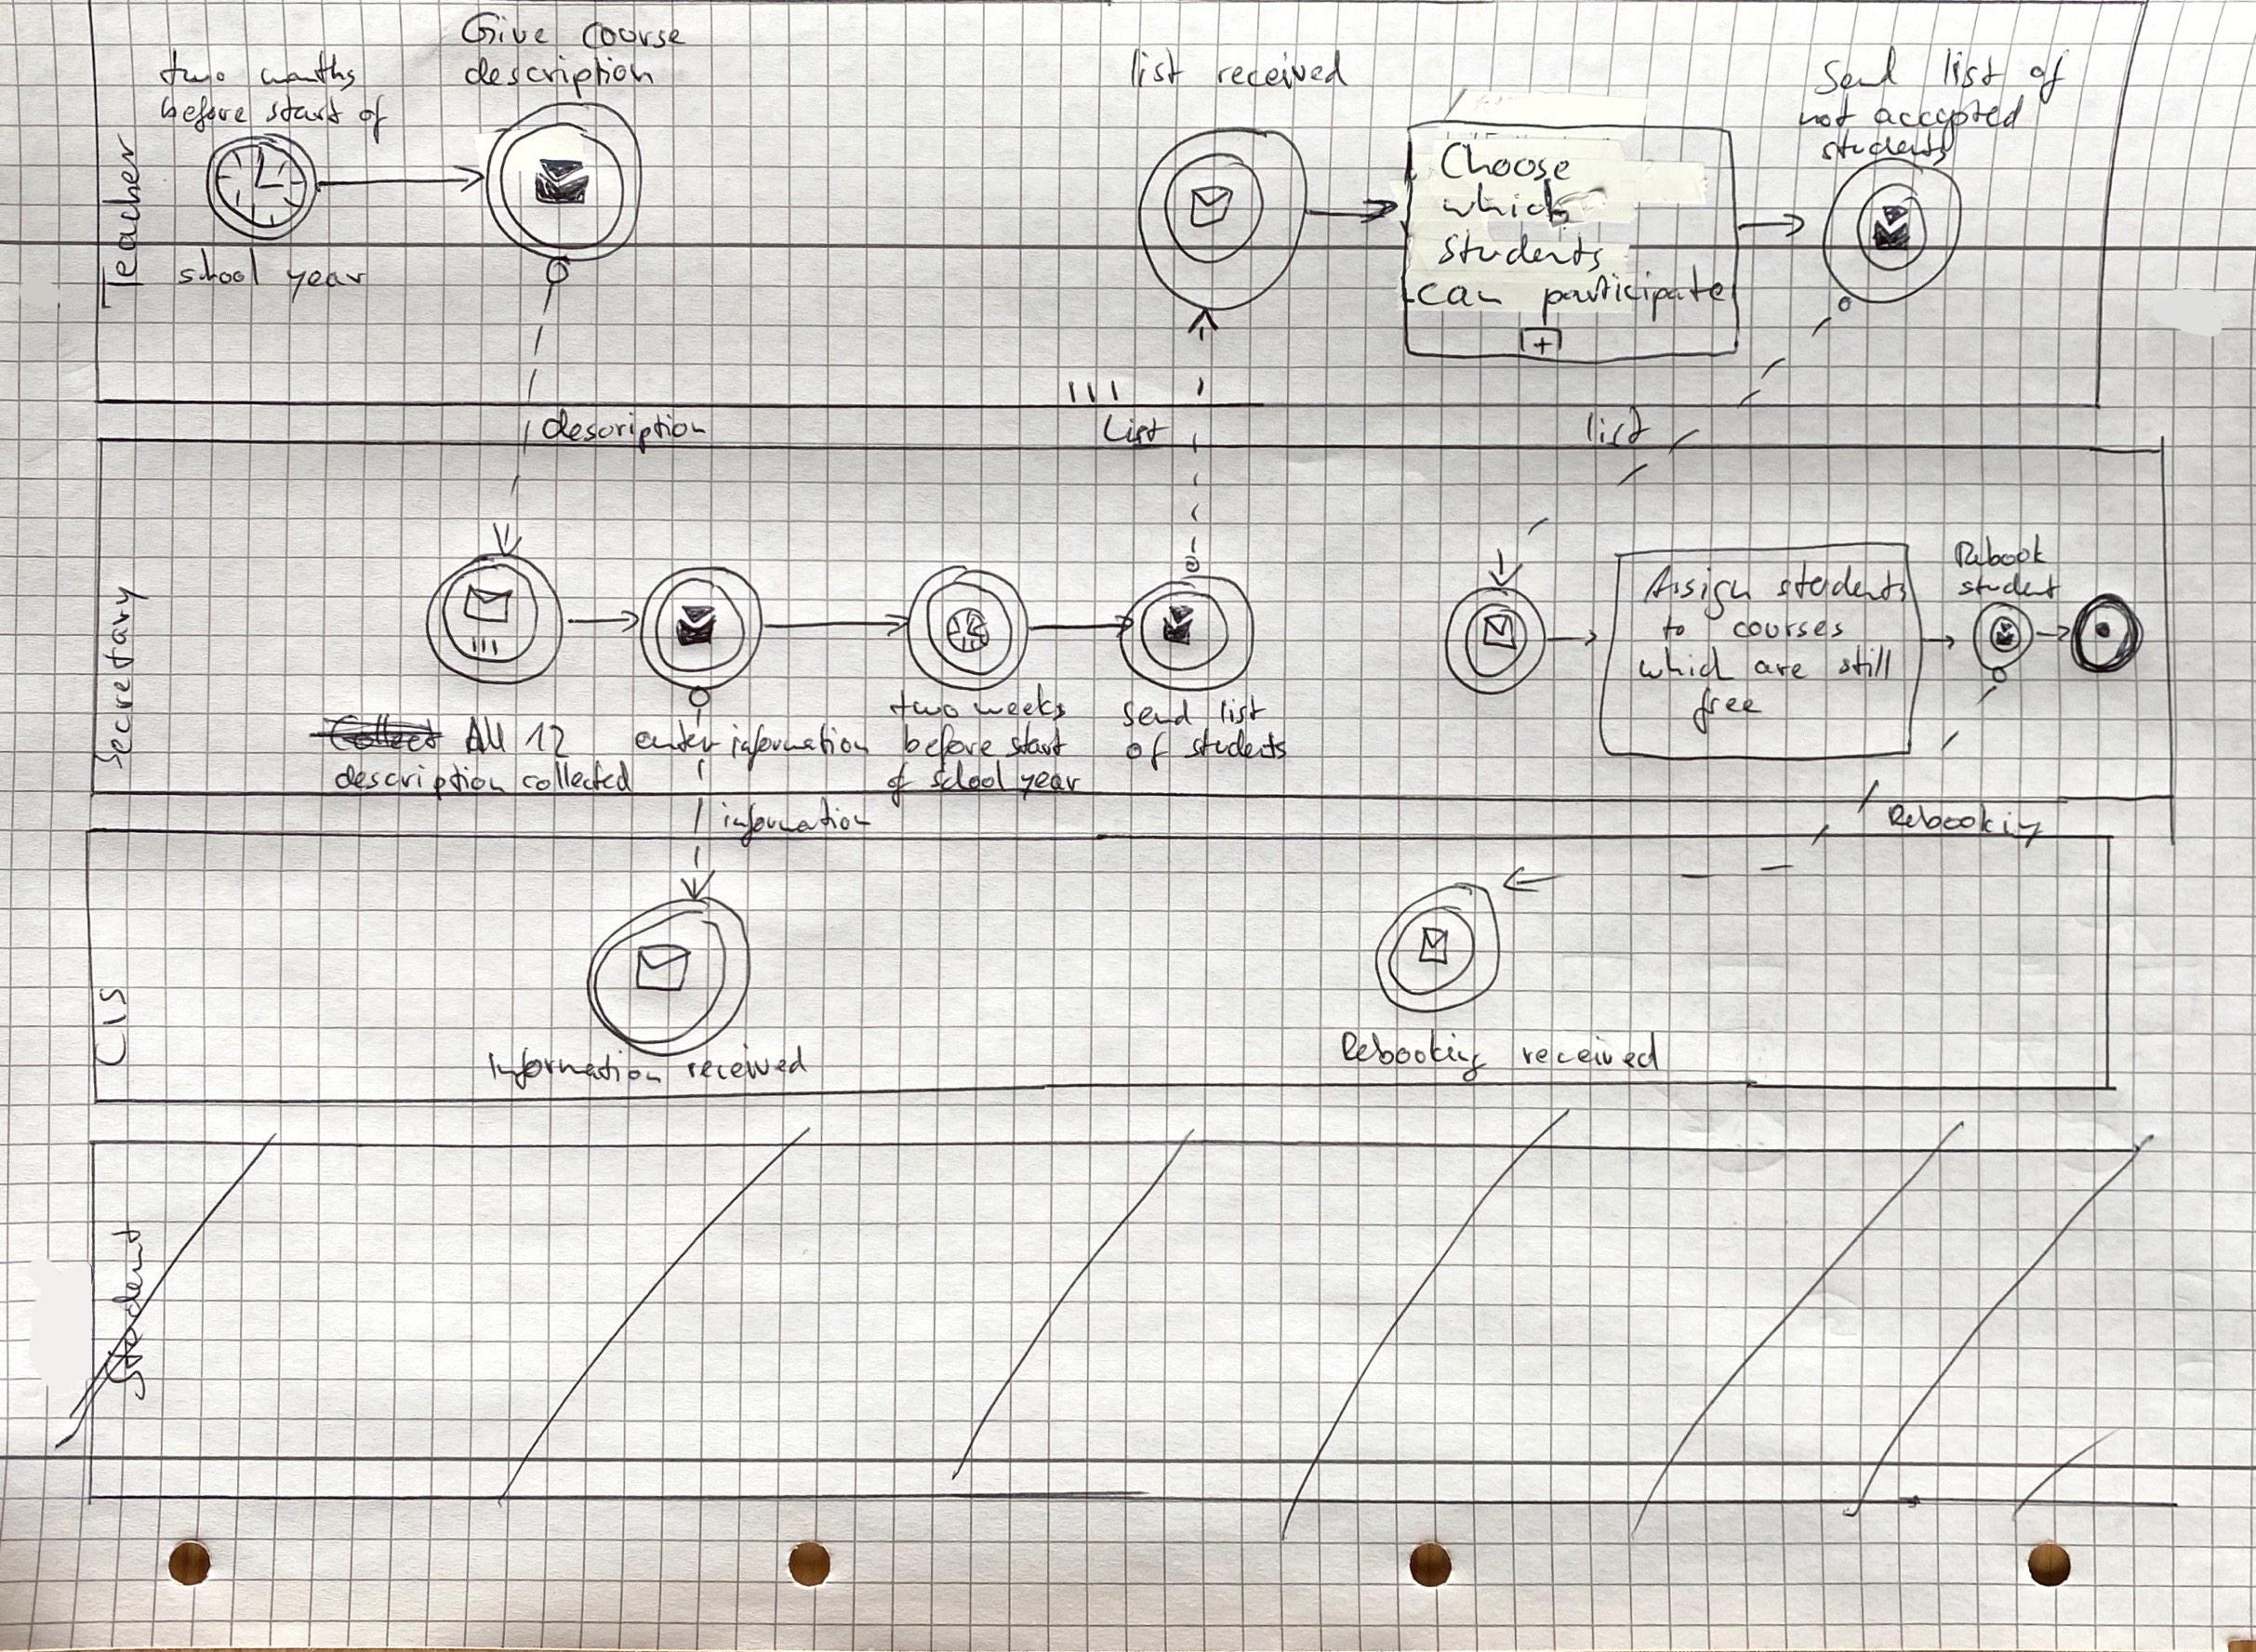 Give course
description
two months
before start of
school year
list received
Choose
which
students
can participate
+
Send list of
not accepted
students
Teacher
description
List
list
Secretary
Collect All 12
description collected
enter information
two weeks
before start
of school year
send list
of students
Assign students
to courses
which are still
free
Rebook
student
information
Rebooking
CIS
Information received
Rebooking received
Student